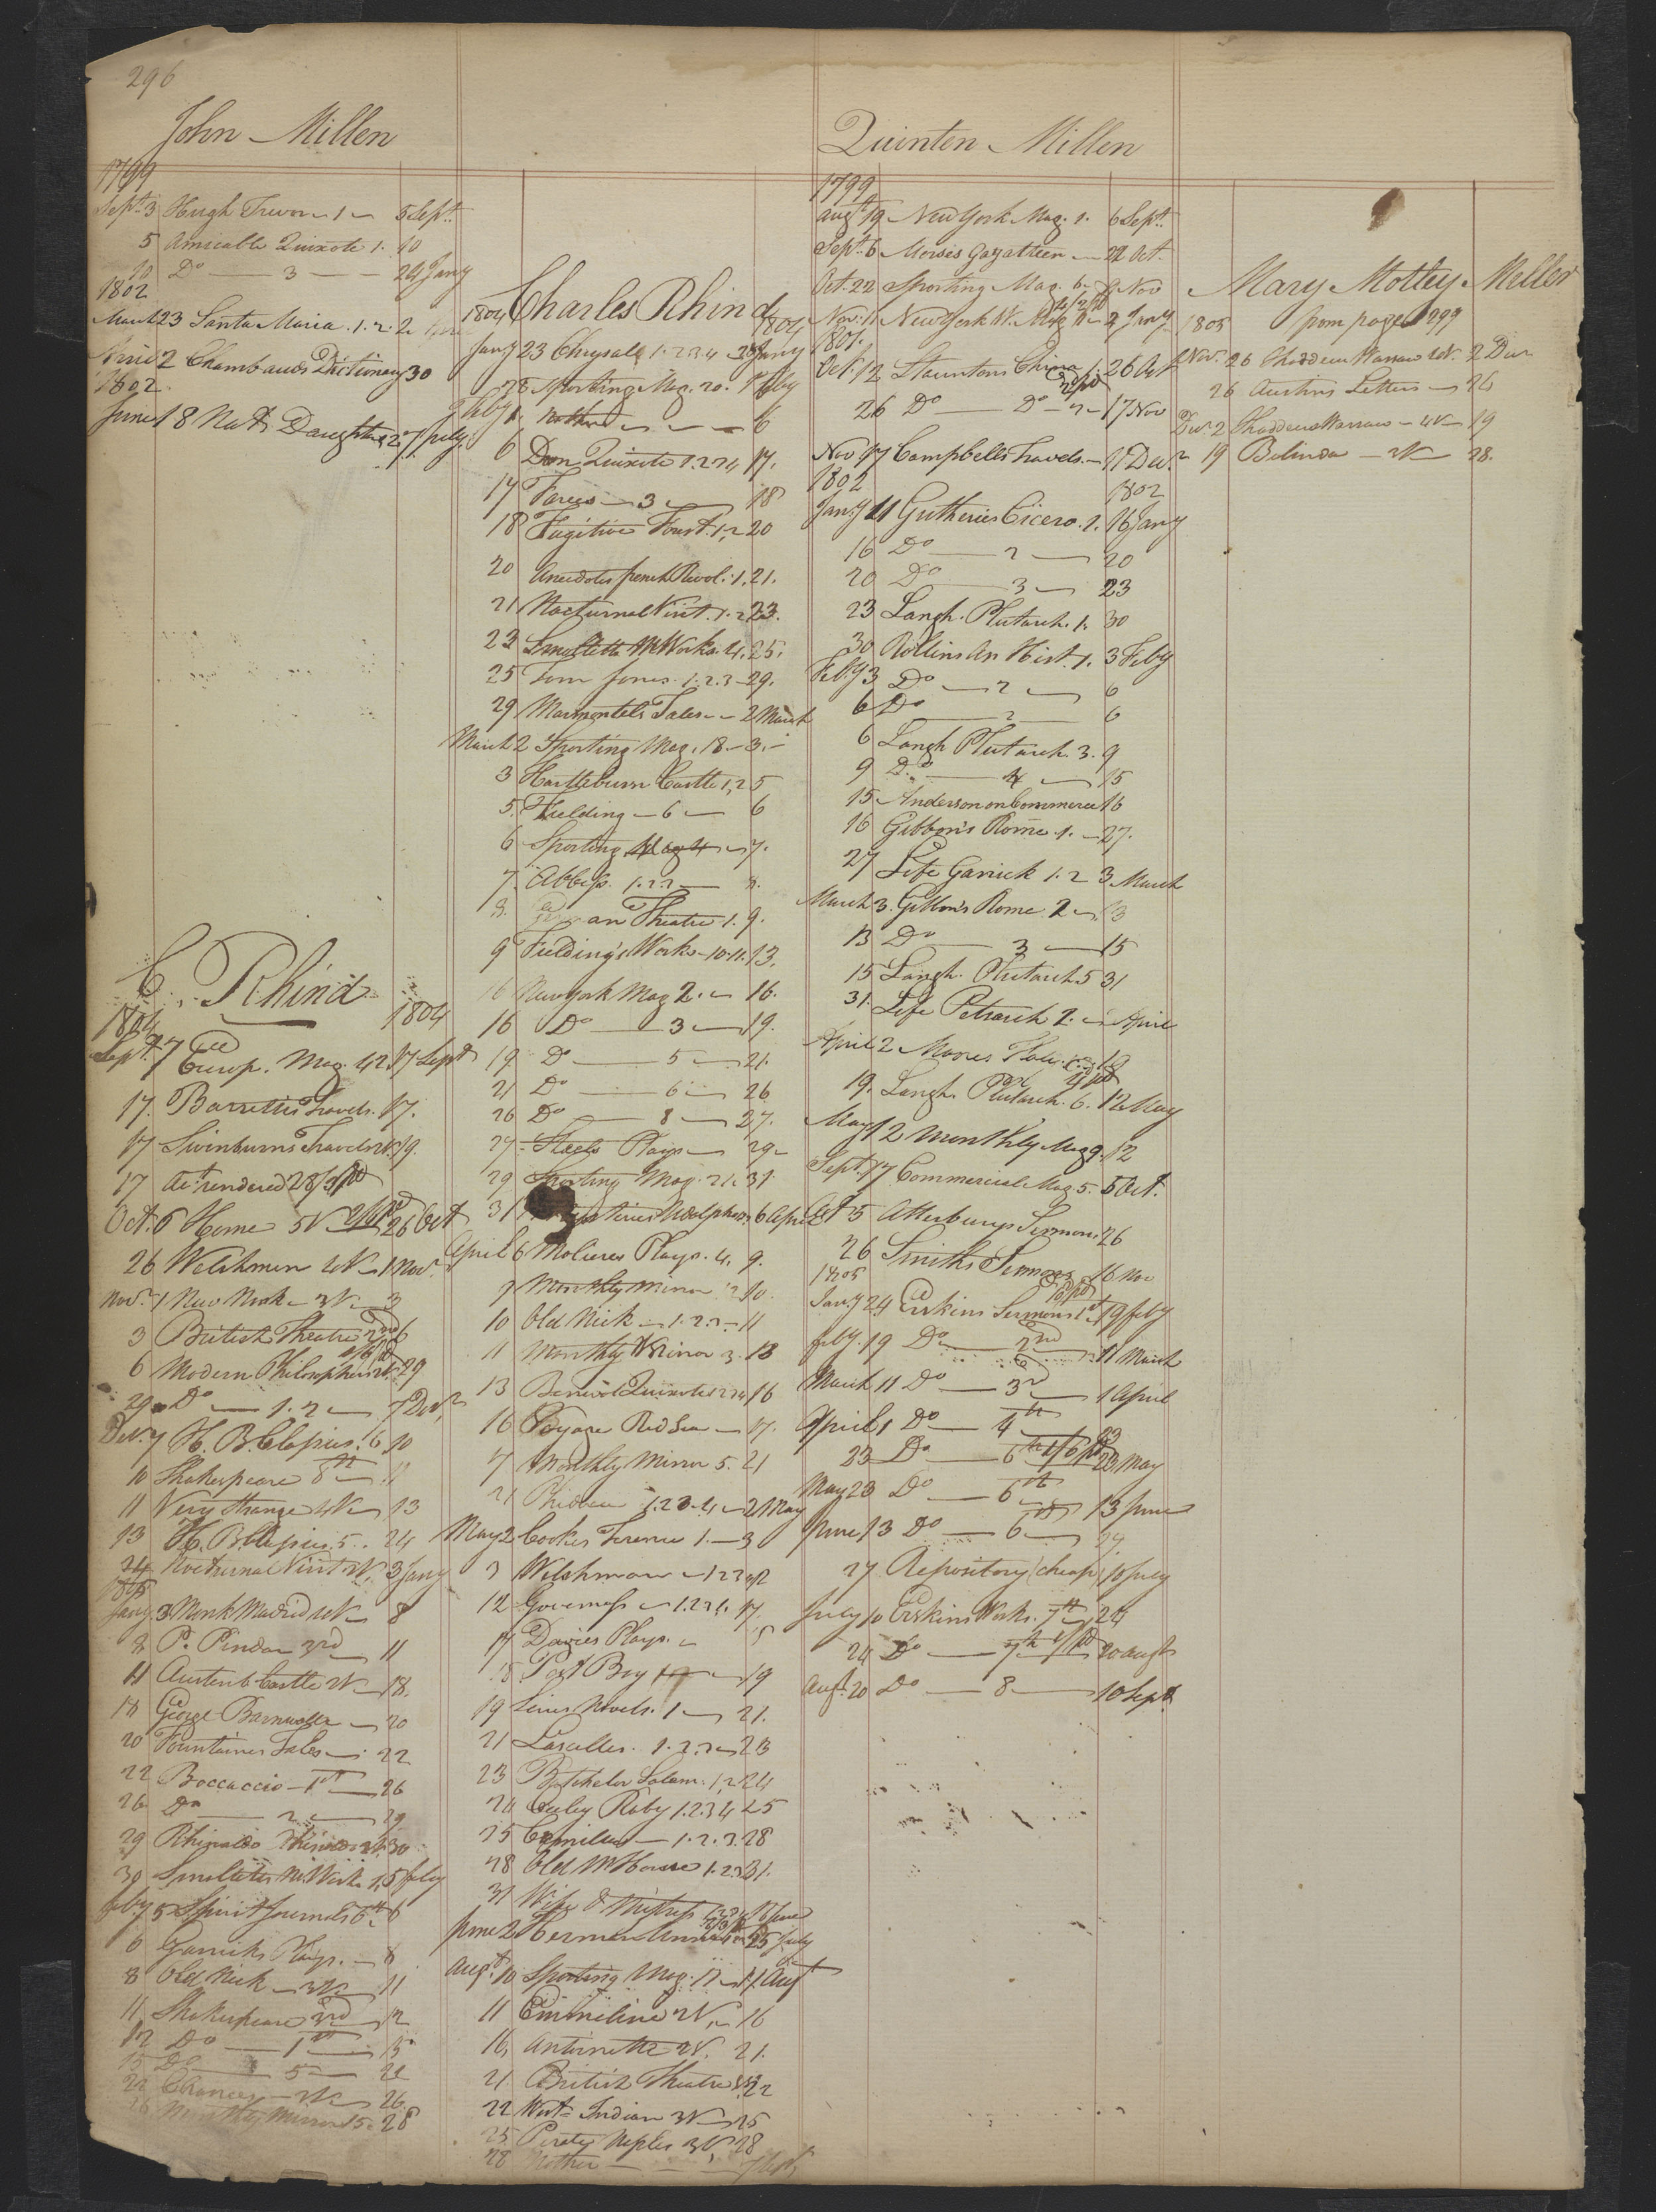 296
John Millen
1799
Sept. 3 Hugh Trevor 1 5 Sept.
5 Amicable Quixote 1. 10
10 Do 3 24 Jany
1802
March 23 Santa Maria. 1. 2. 2
2 Chambauds Dictionary 30
1802
June 18 Nat. Daughter 2. 7 July
C. Rhind
1804 1804
Sept. 7 Europ. Mag. 42. 17 Sept
17. Barrettis Travels. 17.
17 Swinburns Travels 2V. 19.
17 Act. rendered 28/ pd
Oct. 6 Home 5V 26 Oct
26 Welshman 4V 1 Nov.
Nov. 1 New Nick 3V 3
3 British Theatre 23d 6
6 Modern Philosophers 29
29 Do 1. 2 7 Decr
Dec. 7 H. B. Clapius. 6 10
10 Shakespeare 8th 11
11 Very Strange 4V 13
13 H. B. Clapius. 5. 24
24 Nocturnal Visit 2V. 3 Jany
1805
Jany 3 Monk Madrid 4V 8
8 P. Pindar 3rd 11
11 Austenb. Castle 2V 18.
18 George Barnwell 20
20 Fountaines Tales 22
22 Boccaccio 1st 26
26 Do 2 29
29 Rhinaldo Rhinaldi 30
30 Smolletts M. Works 1, 5 Feby
Feby 5 Spirit Journals 6th 6
6 Garricks Plays. 8
8 Old Nick 3V 11
11 Shakespeare 3rd 12
12 Do 1st 15
15 Do 5 22
22 Chances 2V 26
Monthly Mirror 15. 28
Charles Rhind
1804 1804
Jany 23 Chrysal 1. 2 3 4 28 Jany
28 Sporting Mag. 20. 1 Feby
Feby 1 6
6 Don Quixote 1. 2 3 4 17.
17 Farces 3 18
18 Fugitive Forst. 1. 2 20
20 Anecdotes french Revol. 1. 21.
21 Nocturnal Visit. 1. 2 23.
23 Smolletts M Works. 4. 25.
25 Tom Jones. 1. 2. 3 29.
29 Marmontels Tales 2 March
March 2 Sporting Mag. 18. 3.
3 Hartlebourn Castle 1, 2 5
5. Fielding 6 6
6 Sporting Mag 4 7.
7. Abbess. 1. 2 3 8.
8. German Theatre 1. 9.
9 Fielding's Works 10. 11. 13.
16 New York Mag 2. 16.
16 Do 3 19.
19 Do 5 21.
21 Do 6 26
26 Do 8 27.
27 Steels Plays 29
29 Sporting Mag. 21. 31
31 6 April
April 6 Molieres Plays. 4. 9.
9 Monthly Mirror 2 10.
10 Old Nick 1. 2. 3 11
11 Monthly Mirror 3. 13
13 Benevol. Quixote 1 2 3 4 16
16 Voyage Red Sea 17.
17 Monthly Mirror 5. 21
21 Phedora 1. 2 3. 4 2 May
May 2 Cookes Terence 1. 3
3 Welshman 1 2 3 4 12
12 Governess 1. 2 3 4. 17.
17 Davies Plays.
18 Post Boy 19
19 Series Novels. 1 21.
21 Lascelles. 1. 2. 3 23
23 Batchelor Salam. 1, 2 24
24 Ceciley Raby 1. 2. 3 4 25
25 Camilus 1. 2. 3. 28
28 Old M House 1. 2 3 31.
31 Wife & Mistress 1. 2 3 4 2 June
June 2 Herman Unna 25 July
Aug. 10 Sporting Mag. 17 11 Aug
11 Emmeline 2V. 16
16. Antoinette 2V. 21.
21. British Theatre 22
22 West Indian 3V 25
25 Pirate Naples 3V. 28
28 Mother
Quinten Millen
1799
Augt. 19 New York Mag. 1. 6 Sept.
Sept. 6 Morses Gazatteen 22 Oct.
Oct. 22 Sporting Mag. 6. Nov
Nov. 11 New York W. Mag 2 Jany
1801.
Oct. 12 Stauntons China 1. 26 Oct
26 Do Do 2 17 Nov
Nov 17 Campbells Travels. 11 Dec.
1802 1802
Jany 11 Gutheries Cicero. 1. 16 Jany
16 Do 2 20
20 Do 3 23
23 Langh. Plutarch. 1. 30
30 Rollins An Hist. 1. 3 Feby
Feb.y 3 Do 2 6
6 Do 2 6
6 Langh Plutarch. 3. 9
9 Do 4 15
15 Anderson on Commerce 16
16 Gibbon's Rome. 1. 27.
27 Life Garrick 1. 2 3 March
March 3. Gibbon's Rome. 2 13
13 Do 3 15
15 Langh. Plutarch 5 31
31. Life Petrarch 2. April
April 2 Moores 19
19. Langh. Plutarch. 6. 12 May
May 12 Monthly Mag 9. 12
Sept. 17 Commercial Mag. 5. 5 Oct.
Oct 5 Atterburys Sermons 26
26 Smiths Sermons 16 Nov
1805
Jany 24 Erskins Sermons 1st 19 Feby
Feby. 19 Do 2nd 11 March
March 11 Do 3d 1 April
April 1 Do 4th 23
23 Do 6th 1/6 pd 23 May
May 23 Do 6th 13 June
June 13 Do 6th 27
27 Repository (cheap) 10 July
July 10 Erskins Works. 7th 24
24 Do 7th 20 Augt
Augt. 20 Do 8 10 Sept.
Mary Motley Miller
1805 from page 299
Nov. 26 Thaddeus Warsaw 2V. 2 Decr
26 Austins Letters 26
Decr. 2 Thaddeus Warsaw 4V 19
19 Belinda 2V 28.